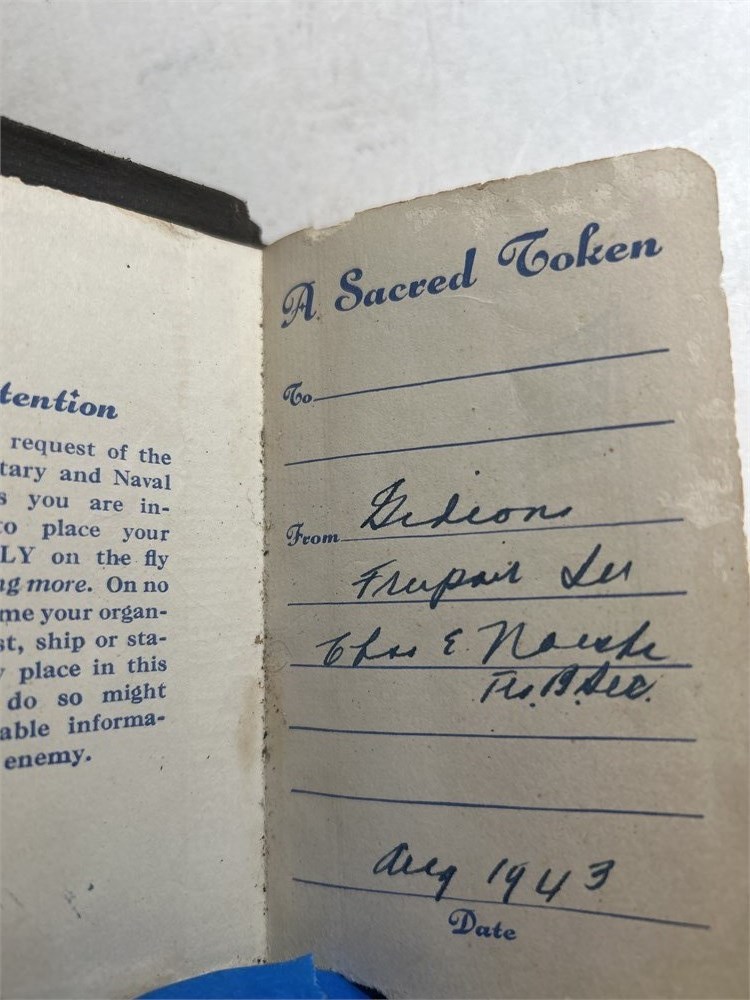 tention
request of the
tary and Naval
s you are in-
to place your
LY on the fly
ng more. On no
me your organ-
st, ship or sta-
y place in this
do so might
able informa-
enemy.
A Sacred Token
To
From Gideons
Freeport Ill
Chas E.
Sec.
Aug 1943
Date